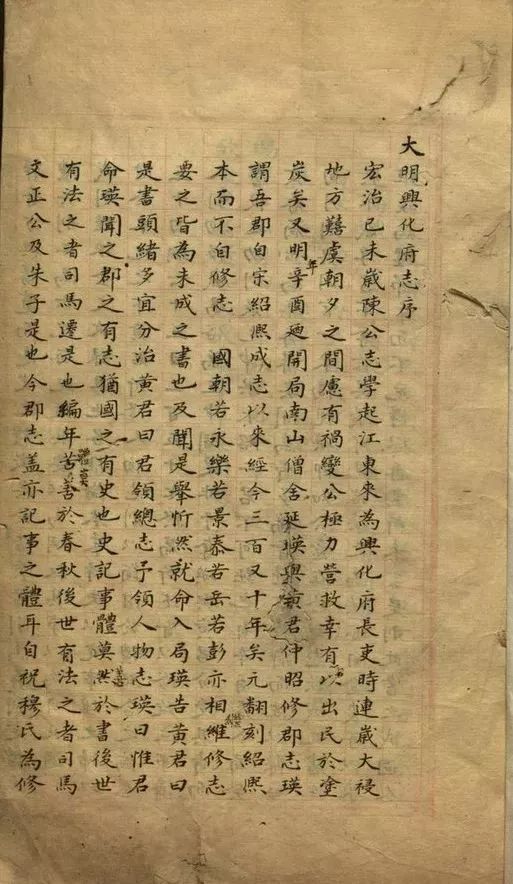 大明興化府志序
宏治己未歲陳公志學起江東來為興化府長吏時連歲大祲
地方虞朝夕之間慮有禍變公極力營救幸有以出民於塗
炭矣又明年辛酉廼開局南山僧舍延瑛與黃君仲昭修郡志瑛
謂吾郡自宋紹熙成志以來經今三百又十年矣元翻刻紹熙
本而不自修志　國朝若永樂若景泰若岳若彭亦相維繼修志
要之皆為未成之書也及聞是舉忻然就命入局瑛告黃君曰
是書頭緒多宜分治黃君曰君領總志予領人物志瑛曰惟君
命瑛聞之郡之有志猶國之有史也史記事體漠然善於書後世
有法之者司馬遷是也編年體莫苦善於春秋後世有法之者司馬
文正公及朱子是也今郡志蓋亦記事之體耳自祝穆氏為修